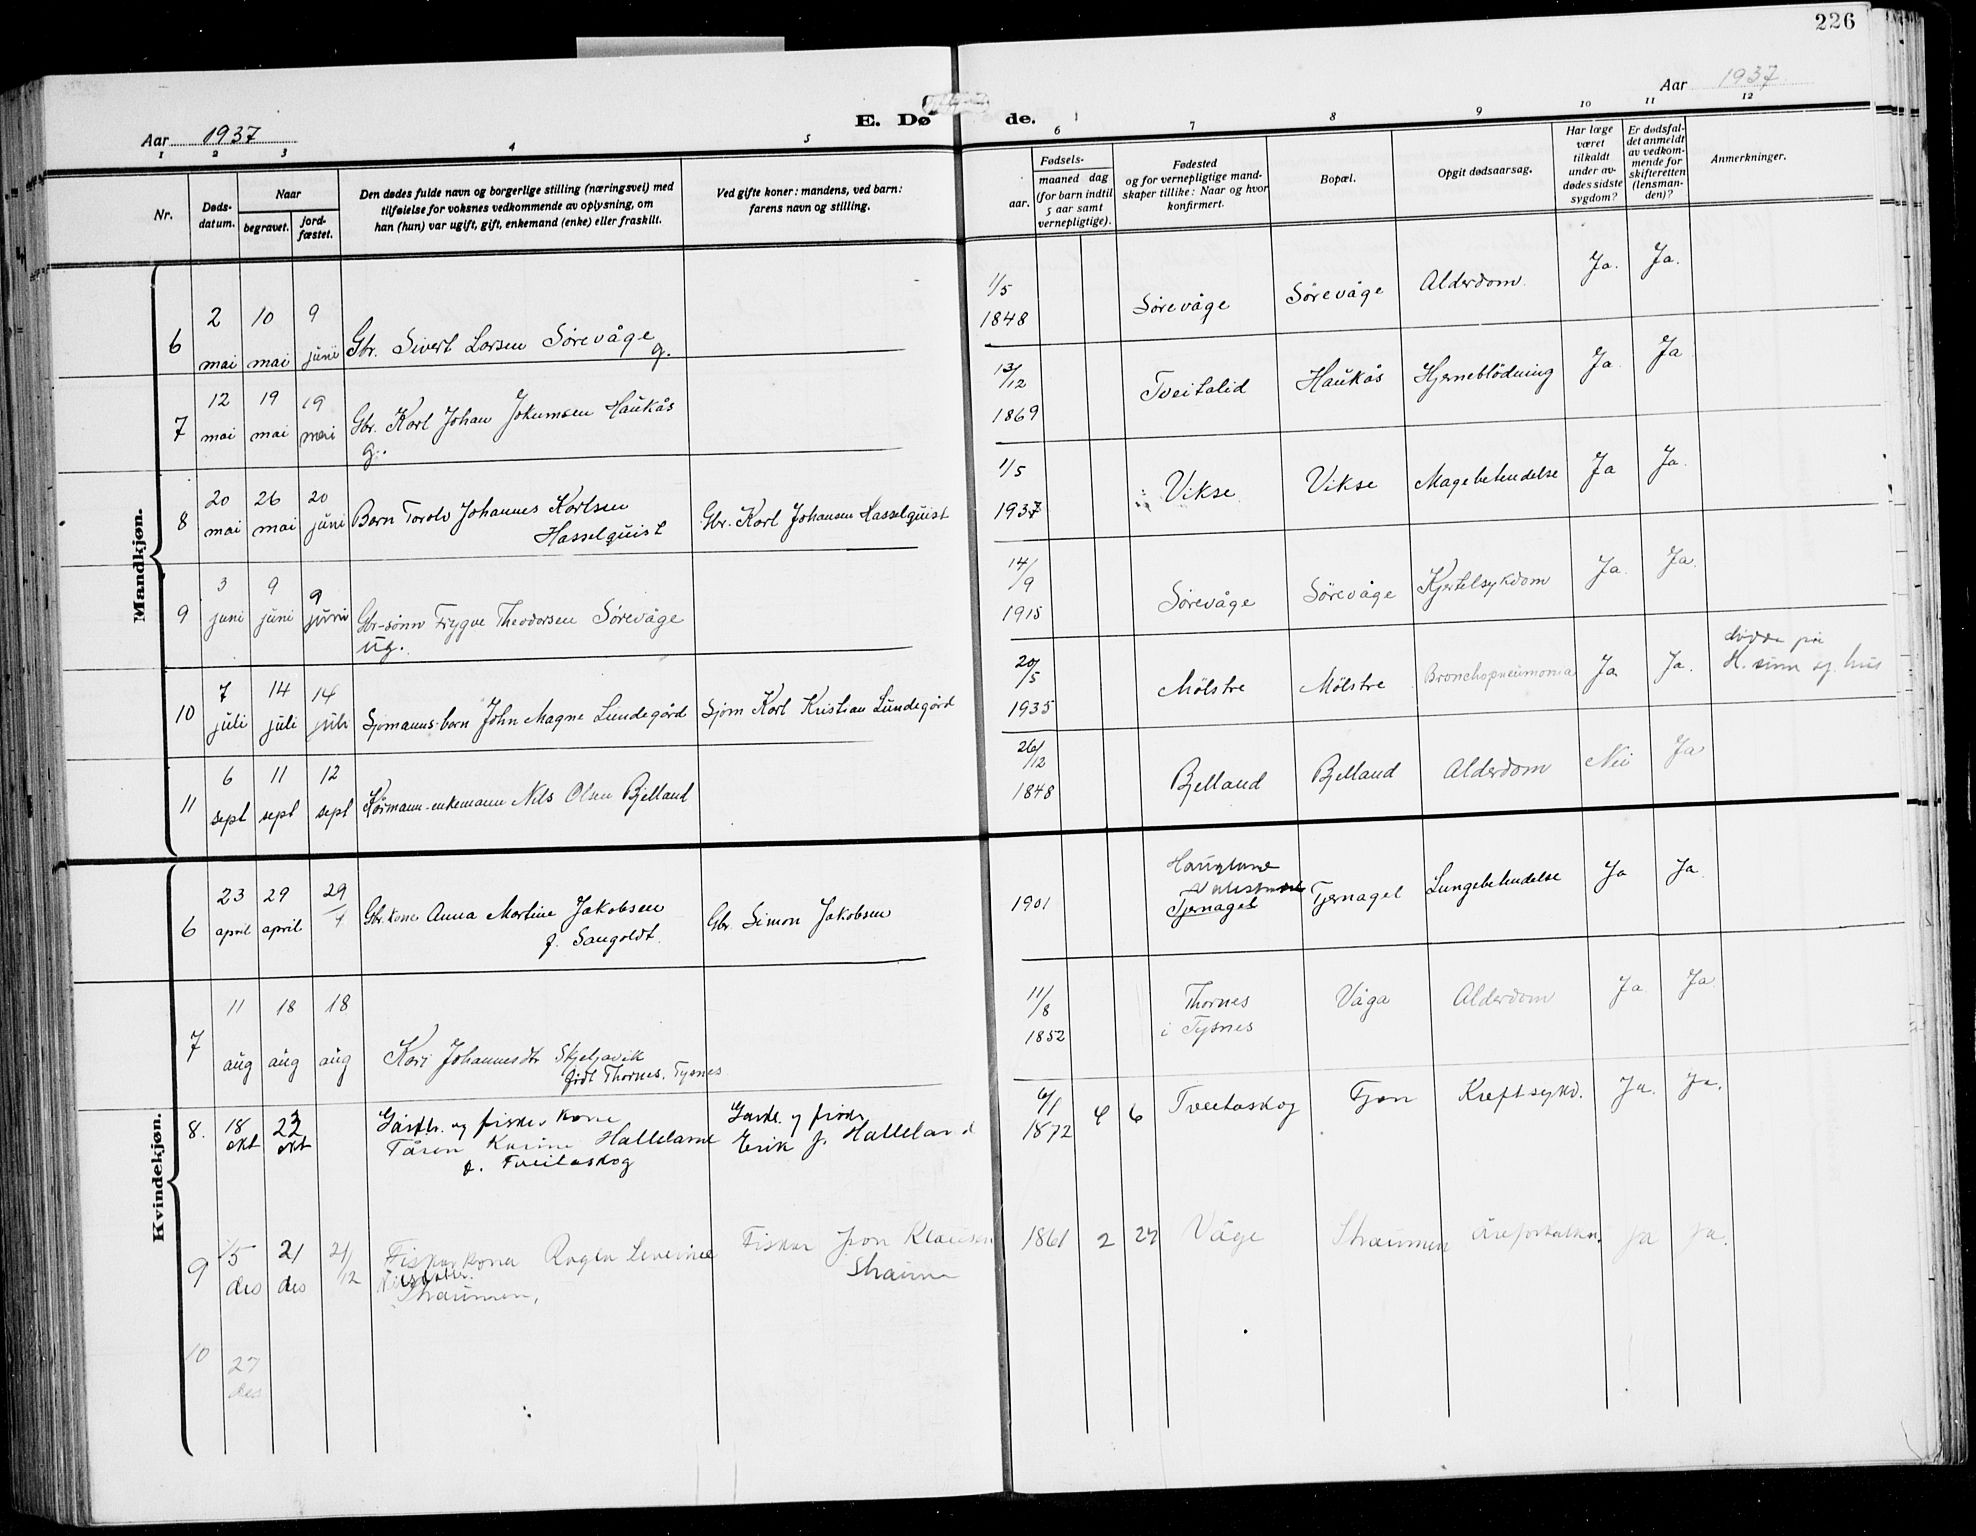 226
Aar 1937
Aar 1937
E. Dø de.
1 2 3 4 5 6 7 8 9 10 11 12
Nr.
Døds-
datum.
Naar
begravet.
jord-
fæstet.
Den dødes fulde navn og borgerlige stilling (næringsvei) med
tilføielse for voksnes vedkommende av oplysning, om
han (hun) var ugift, gift, enkemand (enke) eller fraskilt.
Ved gifte koner: mandens, ved barn:
farens navn og stilling.
Fødsels-
aar.
maaned dag
(for barn indtil
5 aar samt
vernepligtige).
Fødested
og for vernepligtige mand-
skaper tillike: Naar og hvor
konfirmert.
Bopæl.
Opgit dødsaarsag.
Har læge
været
tilkaldt
under av-
dødes sidste
sygdom?
Er dødsfal-
det anmeldt
av vedkom-
mende for
skifteretten
(lensman-
den)?
Anmerkninger.
Mandkjøn.
6 2 mai 10 mai 9 juni Gbr. Sivert Larsen Sørevåge g. 1/5 1848 Sørevåge Sørevåge Alderdom. Ja. Ja.
7 12 mai 19 mai 19 mai Gbr. Karl Johan Jokumsen Haukås g. 13/12 1869 Tveitalid Haukås Hjerneblödning Ja Ja
8 20 mai 26 mai 20 juni Barn Torolv Johannes Karlsen Hasselquist Gbr. Karl Johansen Hasselquist 1/5 1937 Vikse Vikse Magebetendelse Ja Ja.
9 3 juni 9 juni 9 juni Gbr-sønn Trygve Theodorsen Sørevåge ug. 14/9 1915 Sørevåge Sørevåge Kjertelsykdom Ja. Ja.
10 7 juli 14 juli 14 juli Sjömanns-barn John Magne Lundegård Sjöm Karl Kristian Lundegård 20/5 1935 Mölstre Mölstre Bronchopneumonia Ja Ja. døde på H. sunn sj. hus
11 6 sept 11 sept 12 sept Kårmann-enkemann Nils Olsen Bjelland 26/12 1848 Bjelland Bjelland Alderdom Nei Ja
Kvindekjøn.
6 23 april 29 april 29/4 Gbr. kone Anna Martine Jakobsen f. Sangoldt. Gbr. Simon Jakobsen 1901 Tjernagel Tjernagel Lungebetendelse Ja Ja.
7 11 aug 18 aug 18 aug Kari Johannesdtr Skjeljavik født Thornes, Tysnes 11/8 1852 Thornes i Tysnes Våga Alderdom Ja Ja.
8. 18 okt 23 okt Gardbr. og fisker kone Tåren Karine Halleland f. Tveitaskog Gardb. og fisker Erik J. Halleland 6/1 1872 4 6 Tveitaskog Tjøn Kreftsykd. Ja. Ja.
9 15 des 21 des 21/12 Fiskarkona Ragla Severine Straumen, Fiskar Jon Klausen Straume 1861 2 27 Våge Straumen Åreforkalkn. Ja Ja.
10 27 des